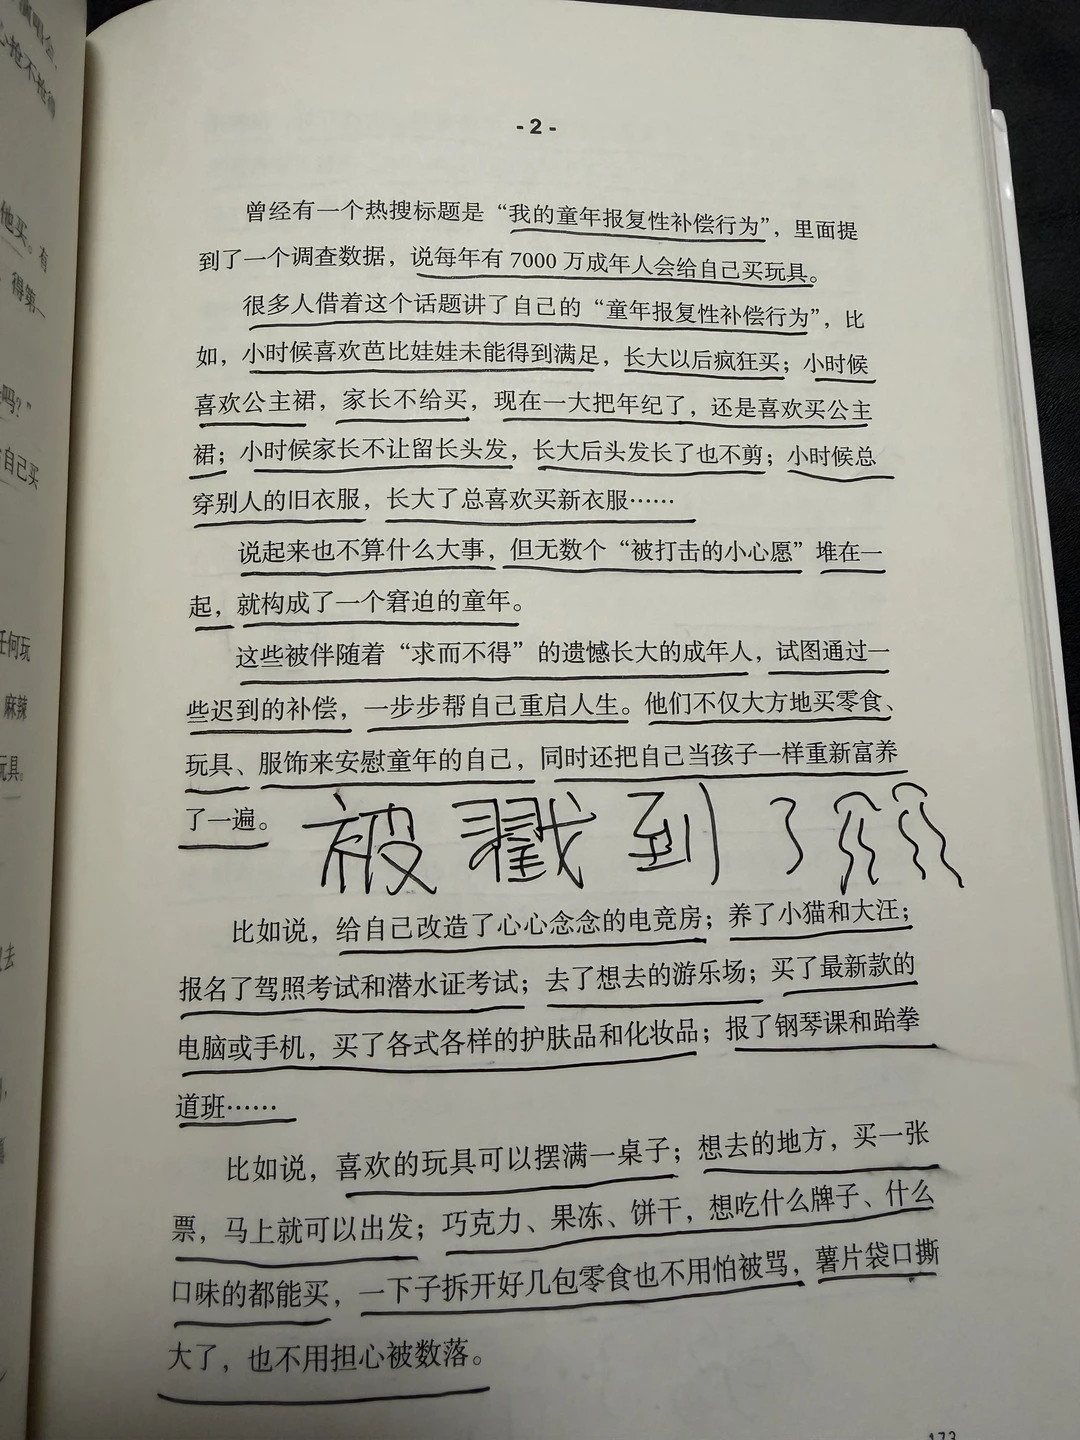 演唱会、
心抢不抢得
他买。有
得第一
吗？”
给自己买
任何玩
麻辣
玩具。
- 2 -
曾经有一个热搜标题是“我的童年报复性补偿行为”，里面提
到了一个调查数据，说每年有 7000 万成年人会给自己买玩具。
很多人借着这个话题讲了自己的“童年报复性补偿行为”，比
如，小时候喜欢芭比娃娃未能得到满足，长大以后疯狂买；小时候
喜欢公主裙，家长不给买，现在一大把年纪了，还是喜欢买公主
裙；小时候家长不让留长头发，长大后头发长了也不剪；小时候总
穿别人的旧衣服，长大了总喜欢买新衣服……
说起来也不算什么大事，但无数个“被打击的小心愿”堆在一
起，就构成了一个窘迫的童年。
这些被伴随着“求而不得”的遗憾长大的成年人，试图通过一
些迟到的补偿，一步步帮自己重启人生。他们不仅大方地买零食、
玩具、服饰来安慰童年的自己，同时还把自己当孩子一样重新富养
了一遍。
被戳到了
比如说，给自己改造了心心念念的电竞房；养了小猫和大汪；
报名了驾照考试和潜水证考试；去了想去的游乐场；买了最新款的
电脑或手机，买了各式各样的护肤品和化妆品；报了钢琴课和跆拳
道班……
比如说，喜欢的玩具可以摆满一桌子；想去的地方，买一张
票，马上就可以出发；巧克力、果冻、饼干，想吃什么牌子、什么
口味的都能买，一下子拆开好几包零食也不用怕被骂，薯片袋口撕
大了，也不用担心被数落。
173